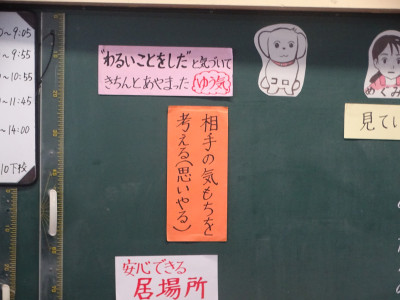 ~9:05
~9:55
~10:55
~11:45
~14:00
10下校
"わるいことをした"と気づいて
きちんとあやまった ゆう気
コロ
めぐみ
見てい
相手の気もちを
考える(思いやる)
安心できる
居場所